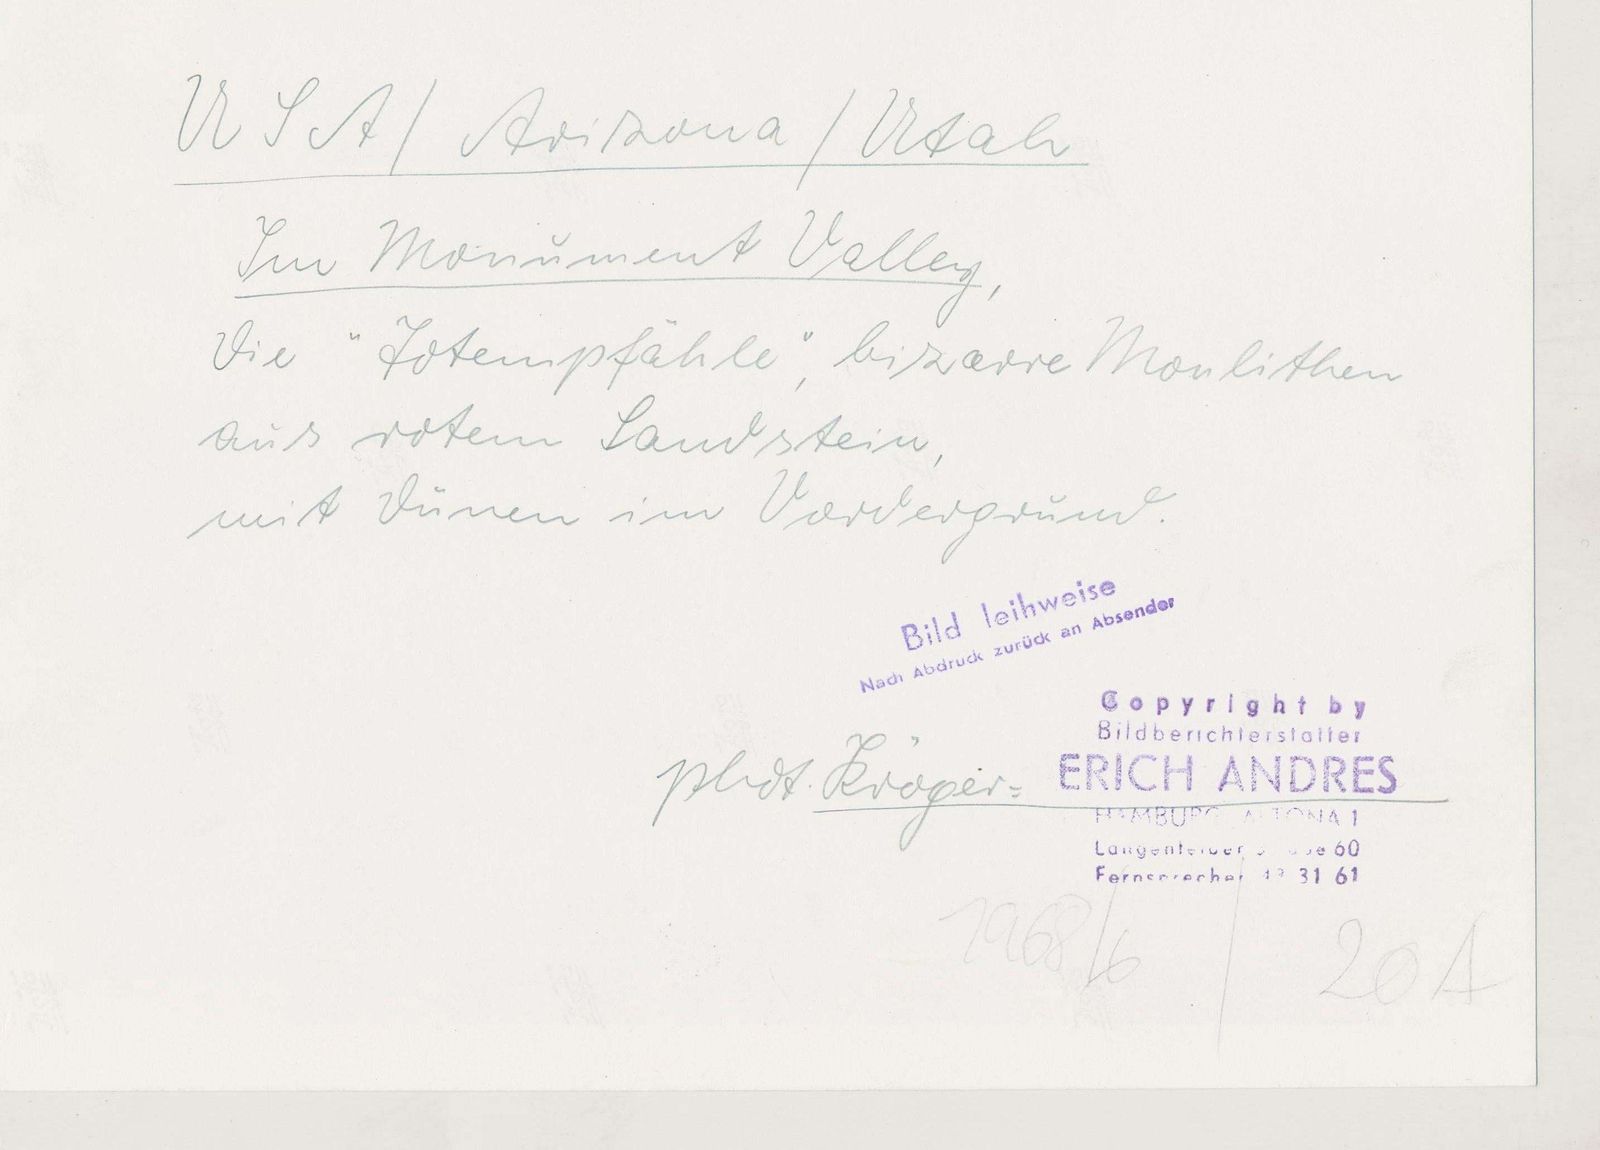 USA / Arizona / Utah
Im Monument Valley,
die "Totempfähle", bizarre Monlithen
aus rotem Sandstein,
mit Dünen im Vordergrund.
Bild leihweise
Nach Abdruck zurück an Absender
Copyright by
Bildberichterstatter
phot. Kröger= ERICH ANDRES
HAMBURG ALTONA 1
Langenfelder 60
Fernsprecher 31 61
1968/6 / 20 A